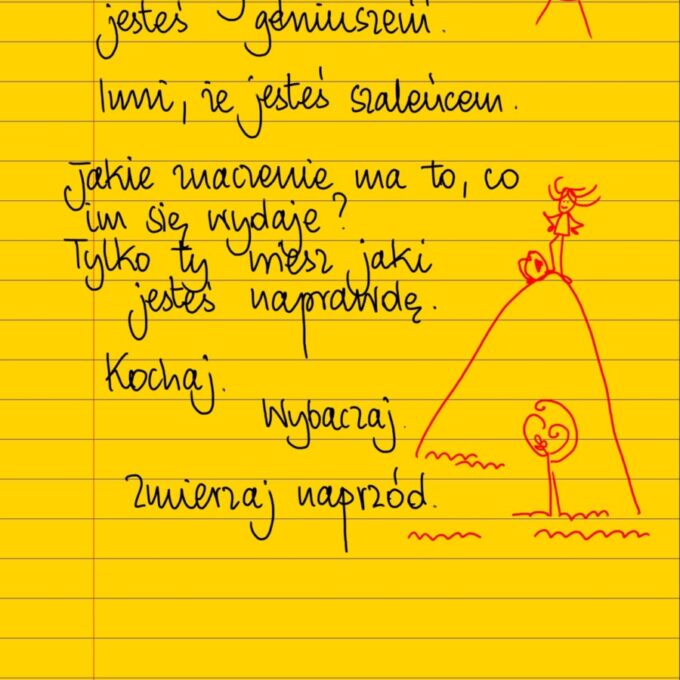 jesteś geniuszem.
Inni, że jesteś szaleńcem.
Jakie znaczenie ma to, co
im się wydaje?
Tylko ty wiesz jaki
jesteś naprawdę.
Kochaj.
Wybaczaj.
Zmierzaj naprzód.